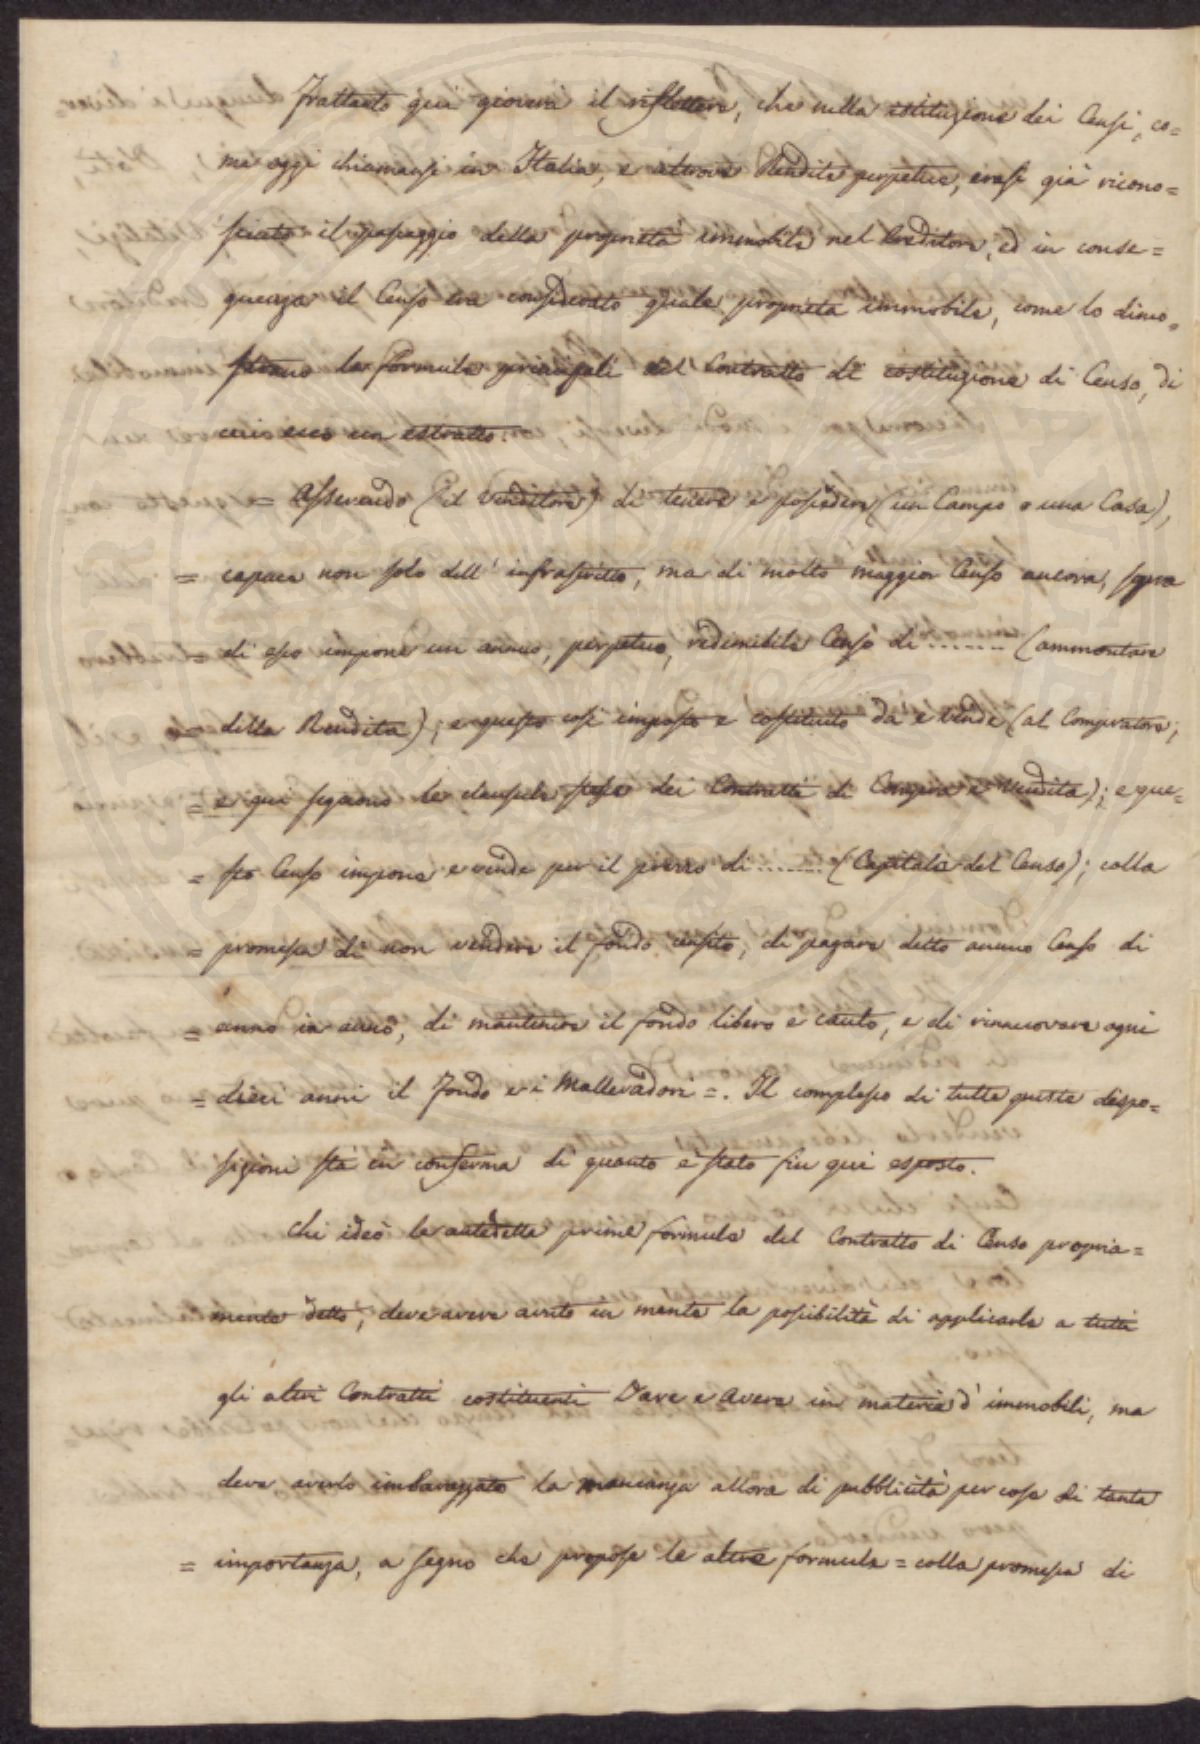 Frattanto qui gioverà il riflettere, che nella istituzione dei Censi, co=
me oggi chiamansi in Italia, e altrove Rendite perpetue, erasi già ricono=
sciuto il passaggio della proprietà immobile nel Creditore, ed in conse=
guenza il Censo era considerato quale proprietà immobile, come lo dimo=
strano le formule principali del Contratto di costituzione di Censo, di
cui ecco un estratto.
= Asserendo (il Venditore) di tenere e possedere (un Campo o una Casa),
= capace non solo dell' infrascritto, ma di molto maggior Censo ancora, sopra
di esso impone un annuo, perpetuo, redimibile Censo di ........ (ammontare
= della Rendita); e questo così imposto e costituito dà e vende (al Compratore,
= e qui seguono le clausule stesse dei Contratti di Compra e Vendita); e que=
= sto Censo impone e vende per il prezzo di ........ (Capitale del Censo); colla
= promessa di non vendere il fondo censito, di pagare detto annuo Censo di
= anno in anno, di mantenere il fondo libero e cauto, e di rinnuovare ogni
= dieci anni il Fondo e i Mallevadori =. Il complesso di tutte queste dispo=
sizioni sta in conferma di quanto è stato fin qui esposto.
Chi ideò le antedette prime formule del Contratto di Censo propria=
mente detto, deve avere avuto in mente la possibilità di applicarle a tutti
gli altri Contratti costituenti Dare e Avere in materia d' immobili, ma
deve averlo imbarazzato la mancanza allora di pubblicità per cose di tanta
= importanza, a segno che propose le altre formule = colla promessa di